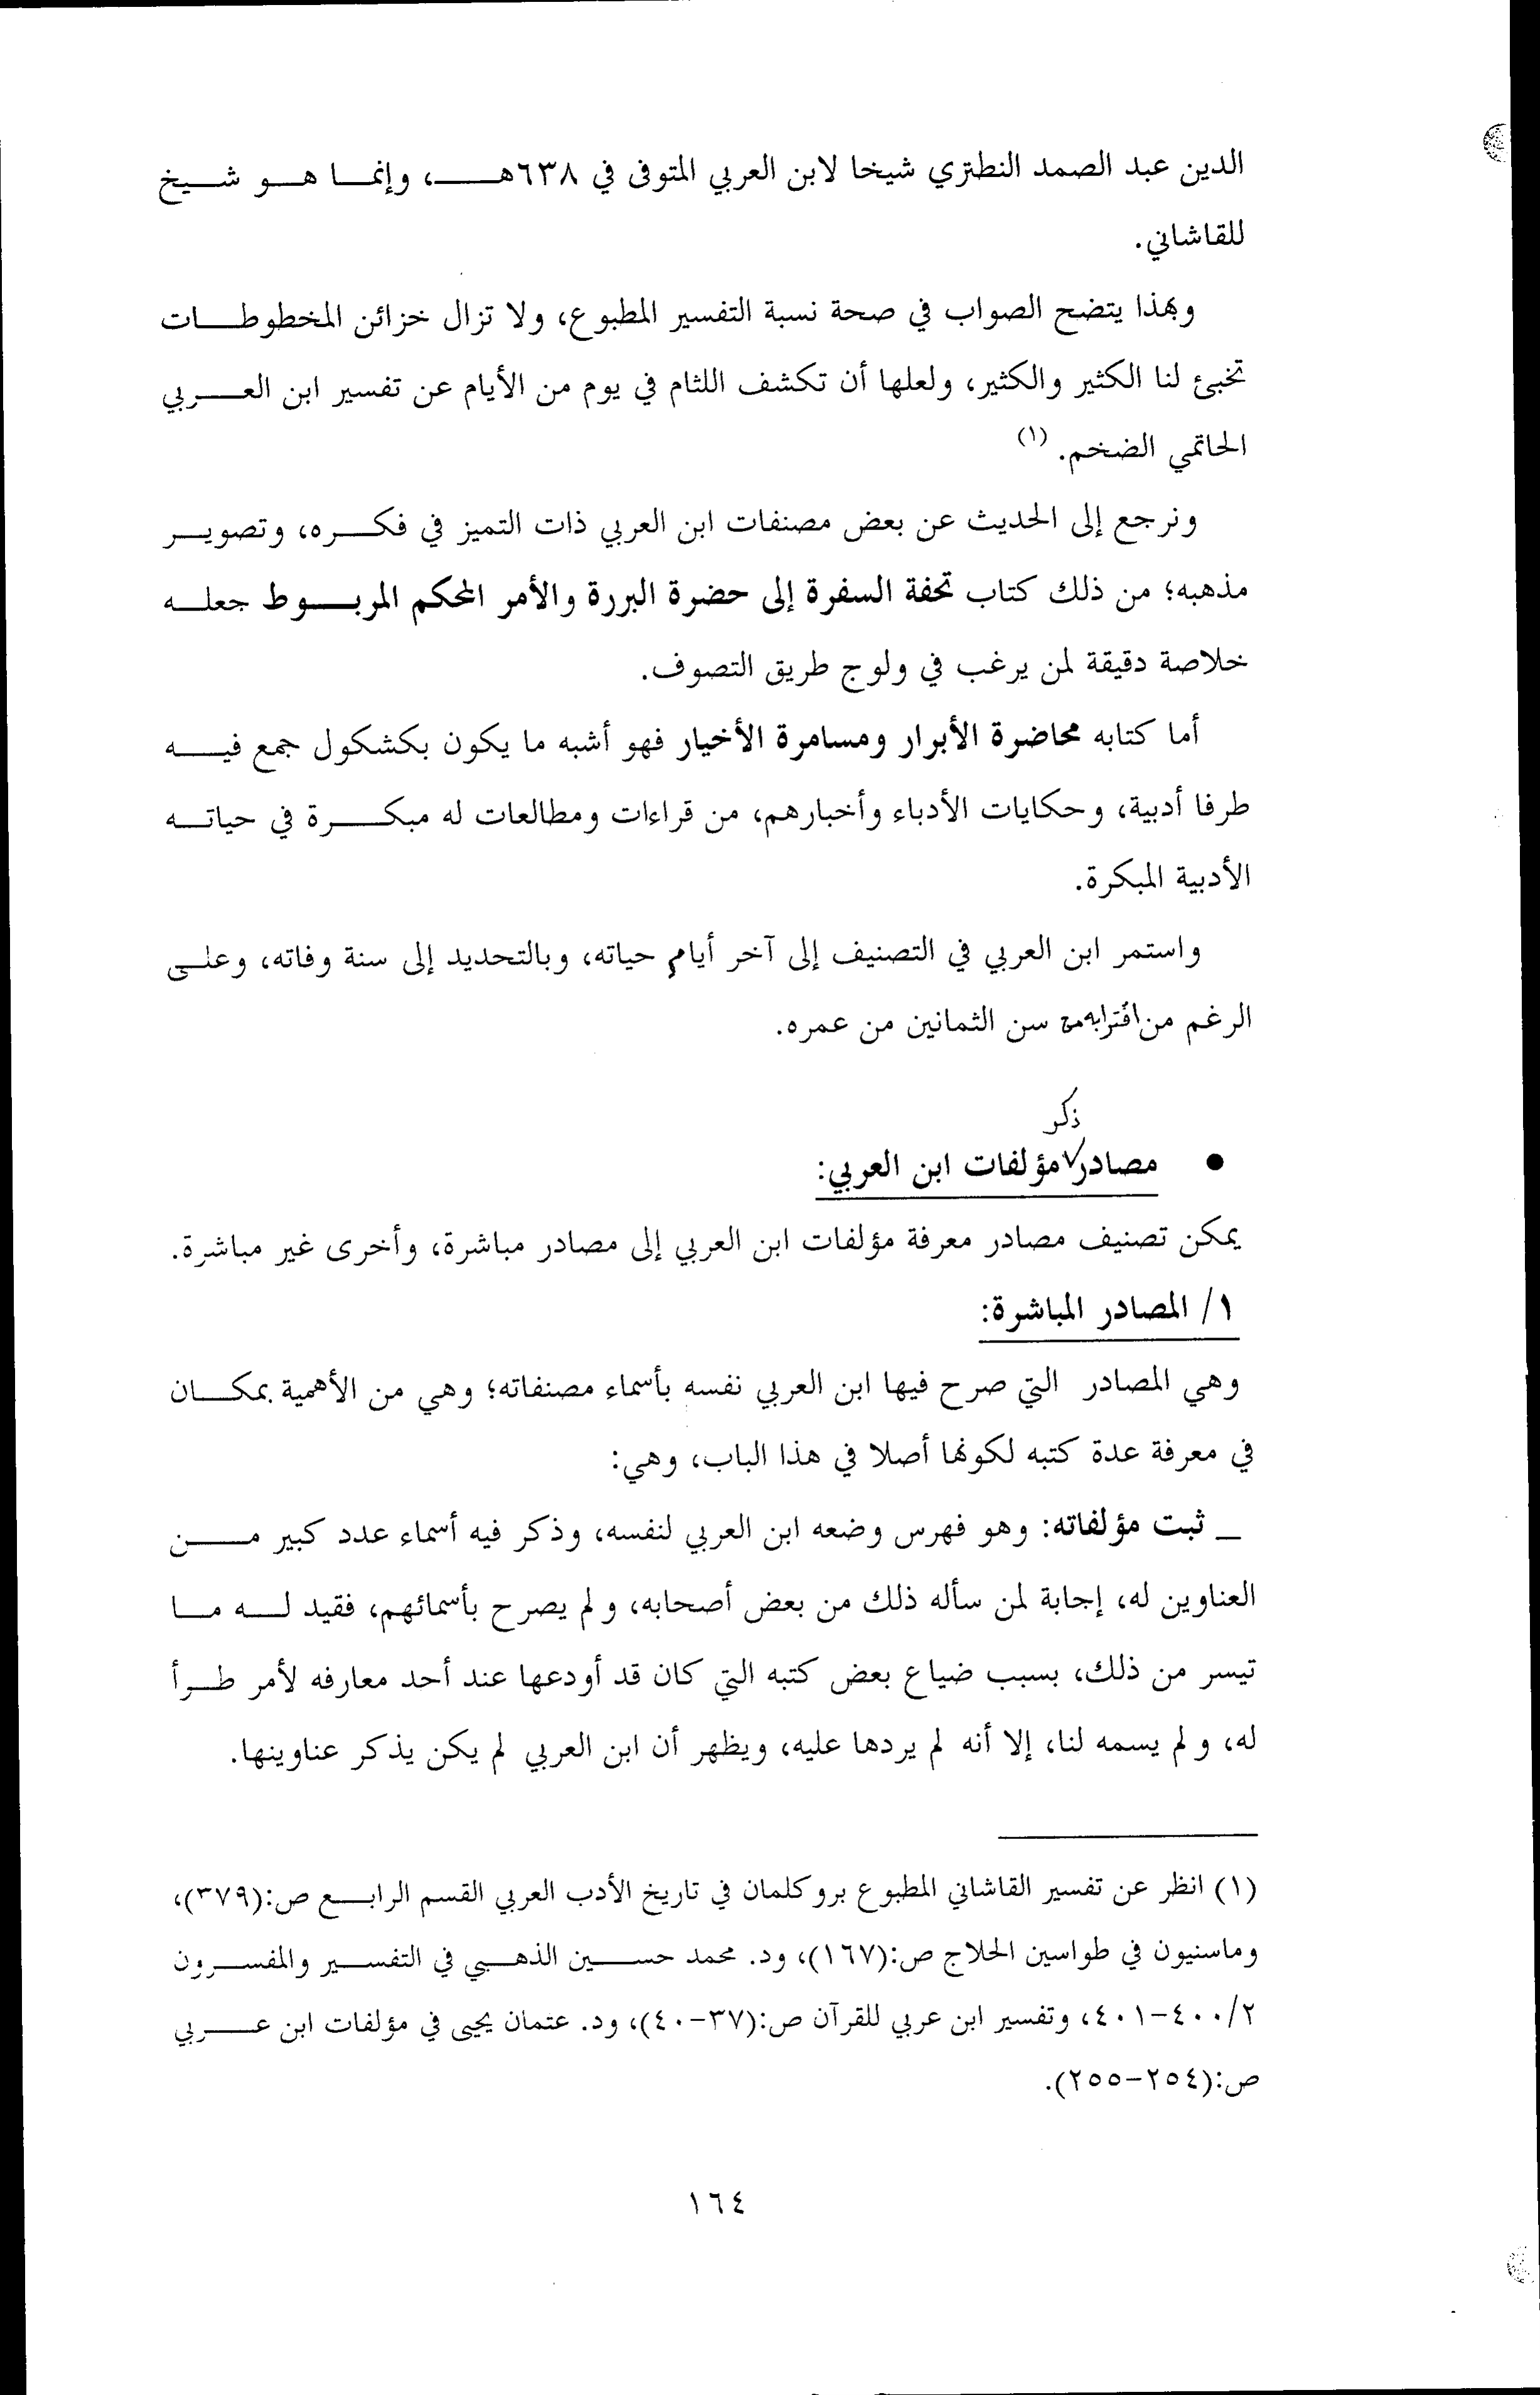 الدين عبد الصمد النطتري شيخا لابن العربي المتوفى في ٦٣٨هـ، وإنما هو شيخ
للقاشاني.
وبهذا يتضح الصواب في صحة نسبة التفسير المطبوع، ولا تزال خزائن المخطوطات
تخبئ لنا الكثير والكثير، ولعلها أن تكشف اللثام في يوم من الأيام عن تفسير ابن العربي
الحاتمي الضخم. (١)
ونرجع إلى الحديث عن بعض مصنفات ابن العربي ذات التميز في فكره، وتصوير
مذهبه؛ من ذلك كتاب تحفة السفرة إلى حضرة البررة والأمر المحكم المربوط جعله
خلاصة دقيقة لمن يرغب في ولوج طريق التصوف.
أما كتابه محاضرة الأبرار ومسامرة الأخيار فهو أشبه ما يكون بكشكول جمع فيه
طرفا أدبية، وحكايات الأدباء وأخبارهم، من قراءات ومطالعات له مبكرة في حياته
الأدبية المبكرة.
واستمر ابن العربي في التصنيف إلى آخر أيام حياته، وبالتحديد إلى سنة وفاته، وعلى
الرغم من اقترابه من سن الثمانين من عمره.
ذكر
• مصادر مؤلفات ابن العربي:
يمكن تصنيف مصادر معرفة مؤلفات ابن العربي إلى مصادر مباشرة، وأخرى غير مباشرة.
١/ المصادر المباشرة:
وهي المصادر التي صرح فيها ابن العربي نفسه بأسماء مصنفاته؛ وهي من الأهمية بمكان
في معرفة عدة كتبه لكونها أصلا في هذا الباب، وهي:
_ ثبت مؤلفاته: وهو فهرس وضعه ابن العربي لنفسه، وذكر فيه أسماء عدد كبير من
العناوين له، إجابة لمن سأله ذلك من بعض أصحابه، ولم يصرح بأسمائهم، فقيد له ما
تيسر من ذلك، بسبب ضياع بعض كتبه التي كان قد أودعها عند أحد معارفه لأمر طرأ
له، ولم يسمه لنا، إلا أنه لم يردها عليه، ويظهر أن ابن العربي لم يكن يذكر عناوينها.
(١) انظر عن تفسير القاشاني المطبوع بروكلمان في تاريخ الأدب العربي القسم الرابع ص:(٣٧٩)،
وماسنيون في طواسين الحلاج ص:(١٦٧)، ود. محمد حسين الذهبي في التفسير والمفسرون
٢/٤٠٠-٤٠١، وتفسير ابن عربي للقرآن ص:(٣٧-٤٠)، ود. عثمان يحيى في مؤلفات ابن عربي
ص:(٢٥٤-٢٥٥).
١٦٤